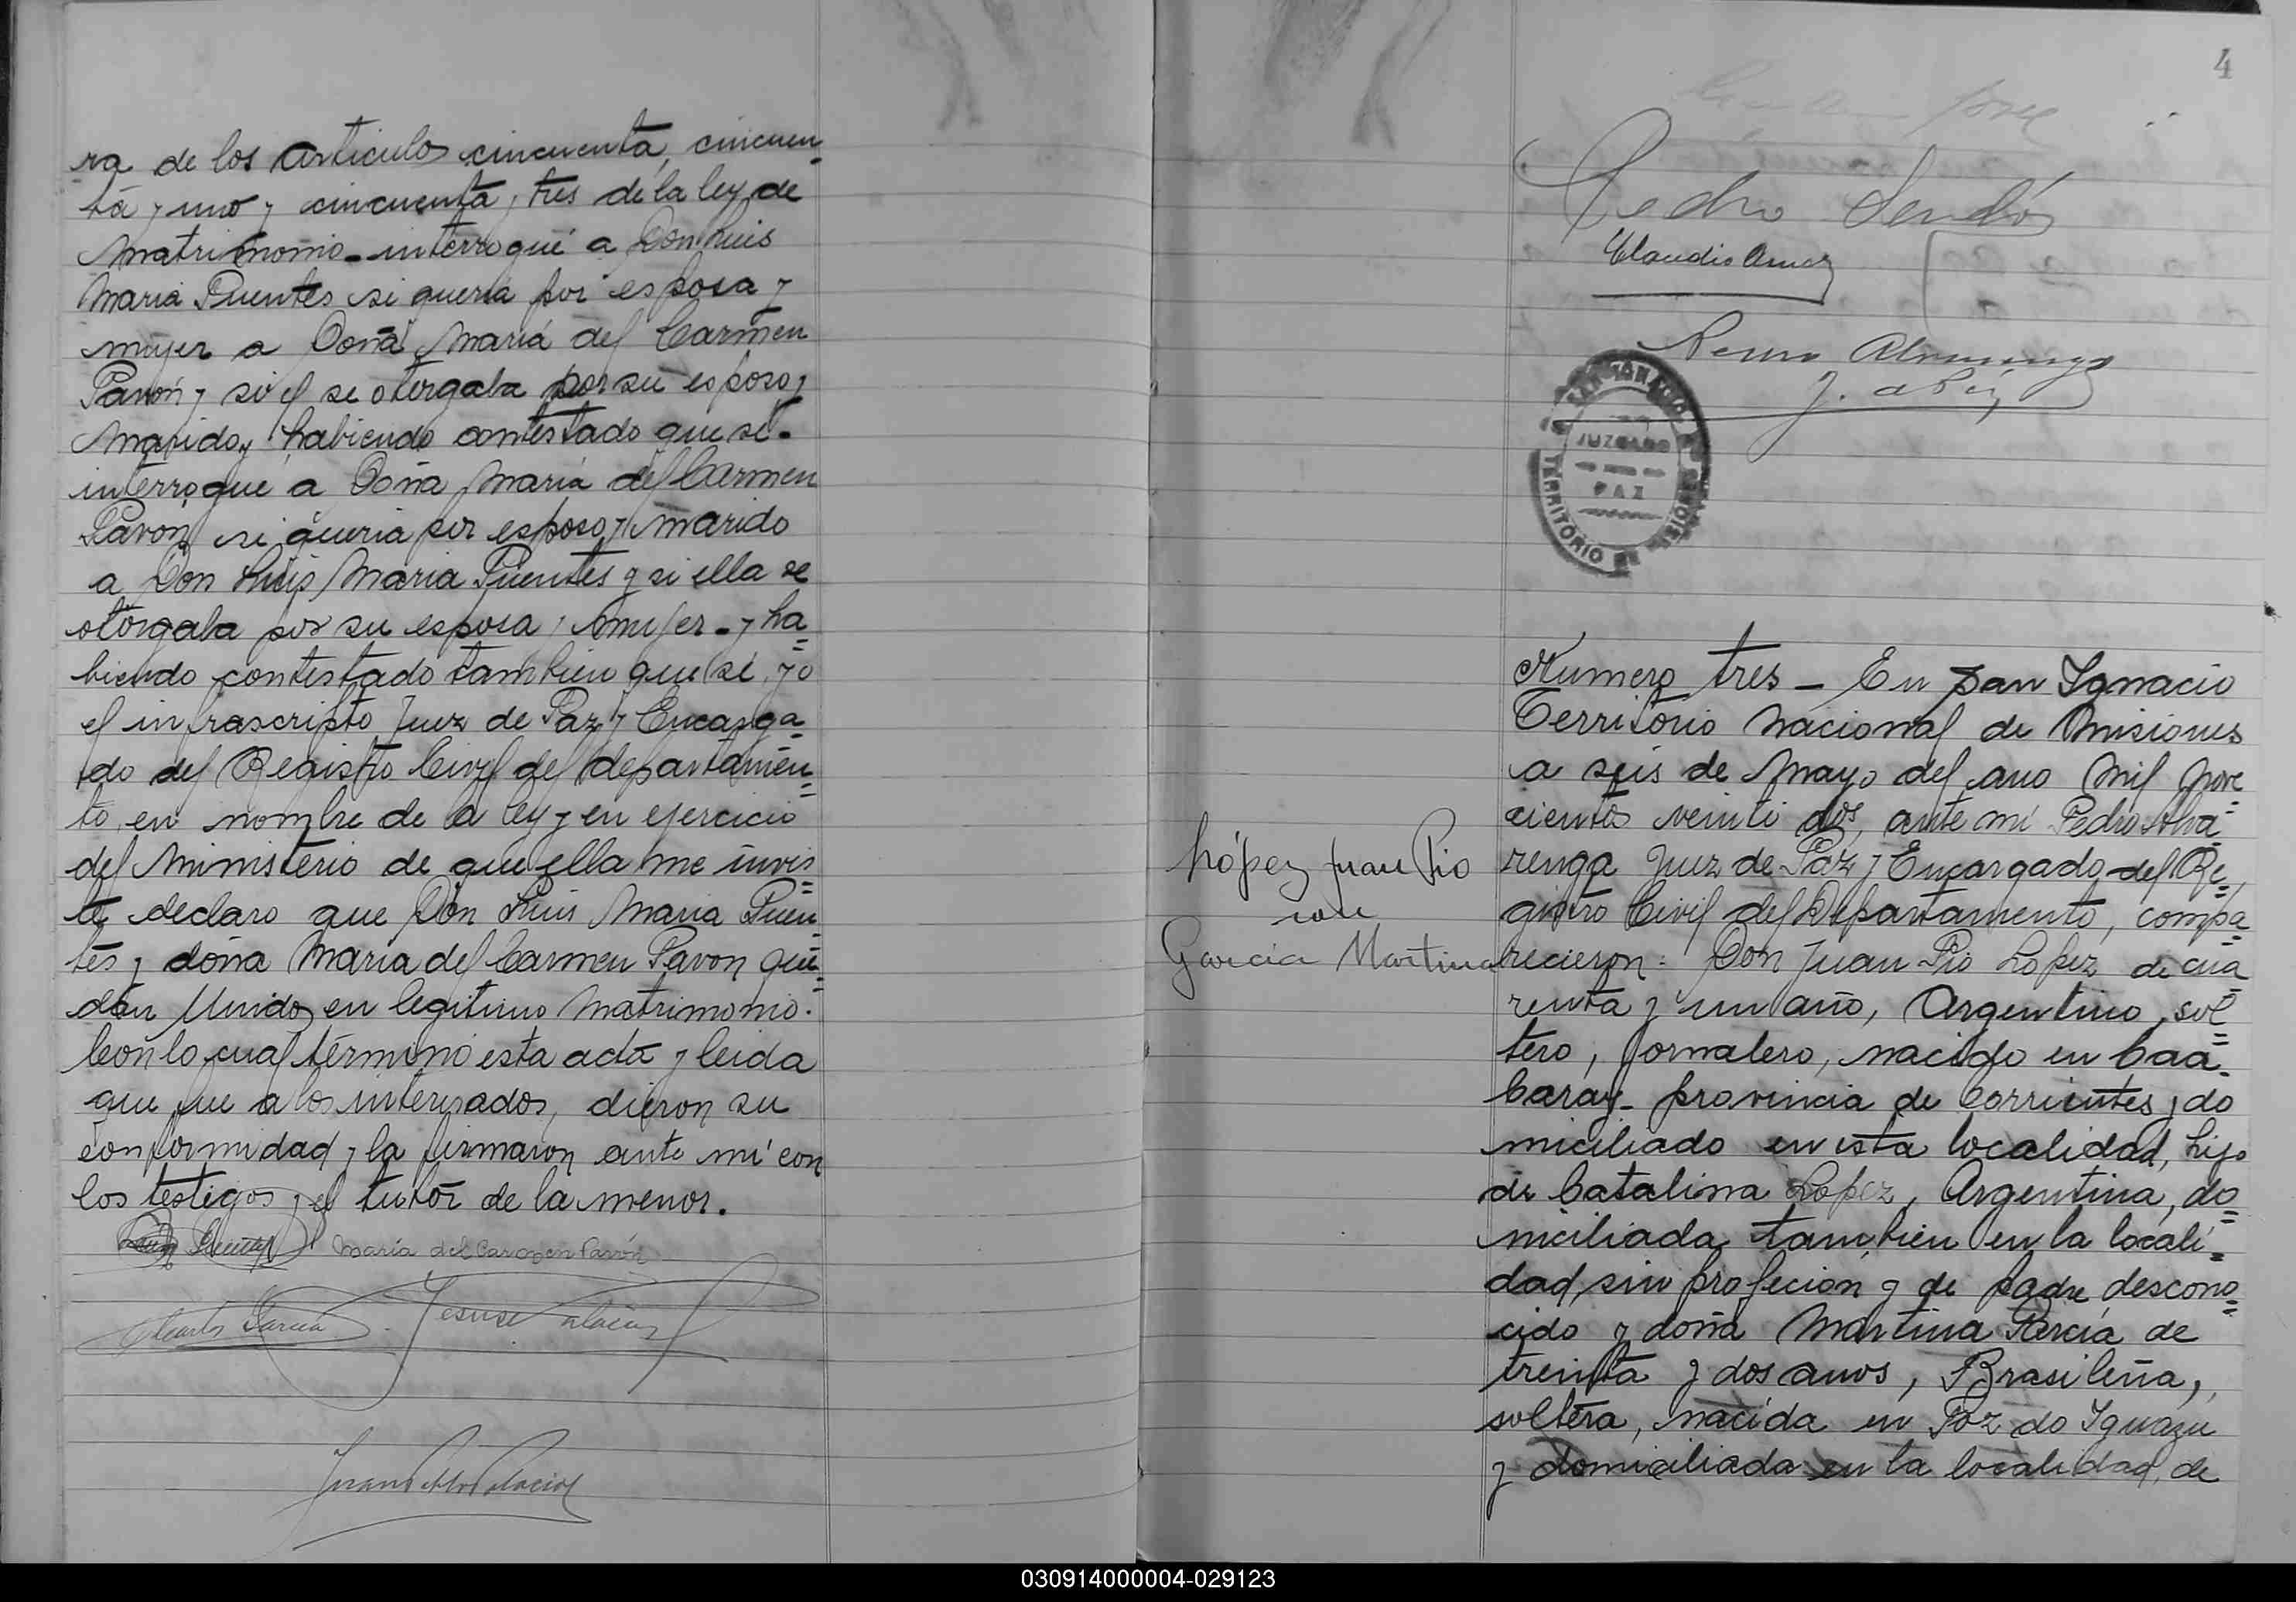 ra de los articulos cincuenta, cincuen
ta y uno y cincuenta y tres de la ley de
matrimonio - interrogué a Don Luis
Maria Puentes si queria por esposa y
mujer a Doña Maria del Carmen
Pavón y si el se otorgaba por su esposo y
marido y habiendo contestado que si -
interrogue a Doña Maria del Carmen
Pavon si queria por esposo y marido
a Don Luis Maria Puentes y si ella se
otorgaba por su esposa y mujer - y ha
biendo contestado tambien que si, yo
el infrascripto Juez de Paz y Encarga
do del Registro Civil del departamen
to, en nombre de a ley y en ejercicio
del Ministerio de que ella me invis
te declaro que Don Luis Maria Puen
tes y doña Maria del Carmen Pavon que
dan Unidos en legitimo Matrimonio.
Con lo cual terminó esta acta y leida
que fue a los interesados, dieron su
conformidad y la firmaron ante mí con
los testigos y el tutor de la menor.
Puentes Maria del Carmen Pavón
Garcia Jesus Palacios
Juan Palacios
4
Pedro
Claudio
SAN IGNACIO
JUZGADO
DE
PAZ
TERRITORIO DE MISIONES
Numero tres - En San Ignacio
Territorio Nacional de Misiones
a seis de Mayo del ano Mil Nove
cientos veinti dos, ante mi Pedro Alva
renga Juez de Paz y Encargado del Re
gistro Civil del Departamento, compa
López Juan Pio
con
Garcia Martina
recieron: Don Juan Pio Lopez de cua
renta y un año, Argentino, sol
tero, Jornalero, nacido en Caa
Caray - provincia de Corrientes y do
miciliado en esta localidad, hijo
de Catalina Lopez, Argentina, do
miciliada tambien en la locali
dad, sin profecion y de padre descono
cido y doña Martina Garcia de
treinta y dos anos, Brasileña,
soltera, nacida en Foz do Iguazu
y domiciliada en la localidad, de
030914000004-029123